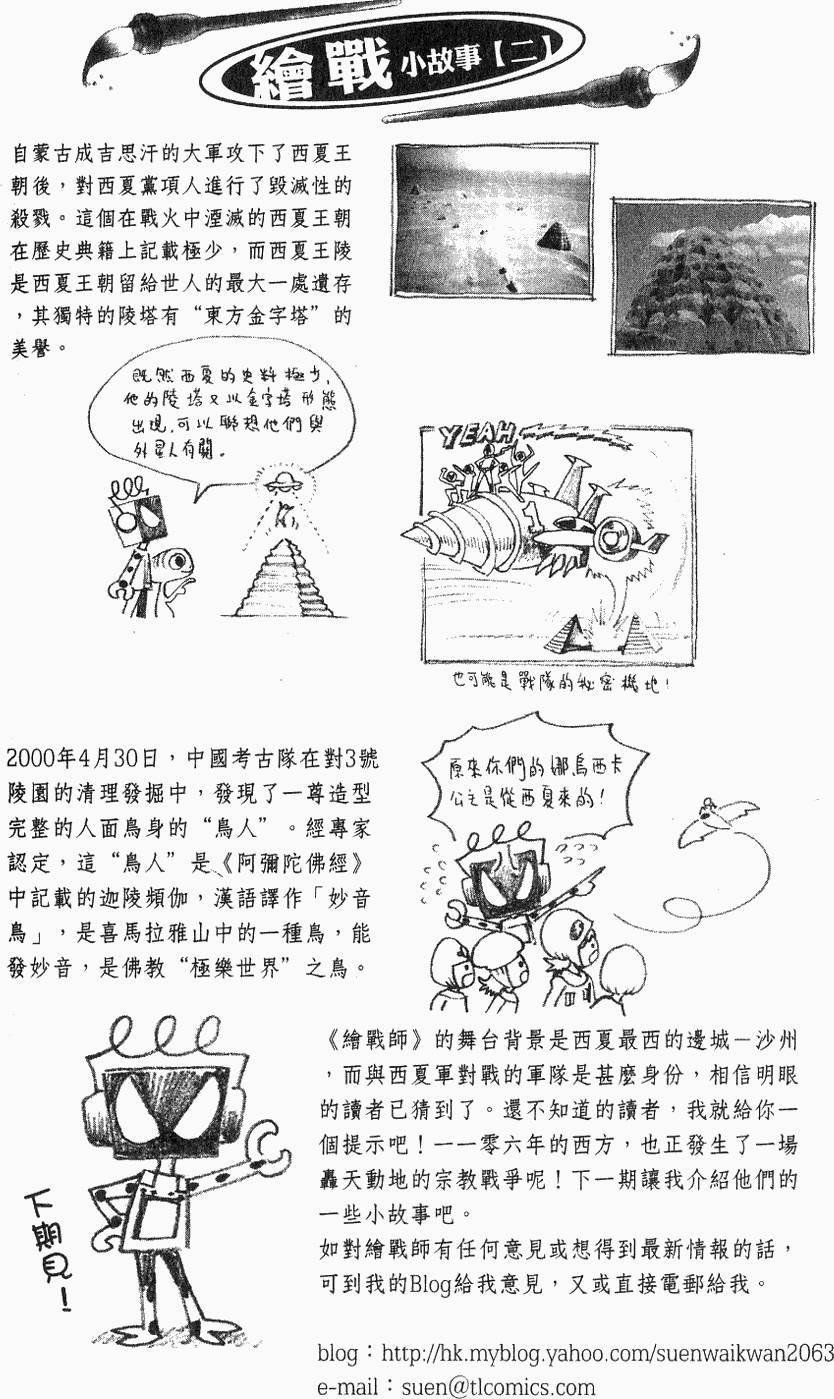 繪戰 小故事【二】
自蒙古成吉思汗的大軍攻下了西夏王
朝後，對西夏黨項人進行了毀滅性的
殺戮。這個在戰火中湮滅的西夏王朝
在歷史典籍上記載極少，而西夏王陵
是西夏王朝留給世人的最大一處遺存
，其獨特的陵塔有“東方金字塔”的
美譽。
既然西夏的史料極少,
他的陵塔又以金字塔形態
出現,可以聯想他們與
外星人有關。
YEAH
1
也可能是戰隊的秘密機地!
2000年4月30日，中國考古隊在對3號
陵園的清理發掘中，發現了一尊造型
完整的人面鳥身的“鳥人”。經專家
認定，這“鳥人”是《阿彌陀佛經》
中記載的迦陵頻伽，漢語譯作「妙音
鳥」，是喜馬拉雅山中的一種鳥，能
發妙音，是佛教“極樂世界”之鳥。
原來你們的娜烏西卡
公主是從西夏來的!
《繪戰師》的舞台背景是西夏最西的邊城－沙州
，而與西夏軍對戰的軍隊是甚麼身份，相信明眼
的讀者已猜到了。還不知道的讀者，我就給你一
個提示吧！一一零六年的西方，也正發生了一場
轟天動地的宗教戰爭呢！下一期讓我介紹他們的
一些小故事吧。
如對繪戰師有任何意見或想得到最新情報的話，
可到我的Blog給我意見，又或直接電郵給我。
下期見!
blog：http://hk.myblog.yahoo.com/suenwaikwan2063
e-mail：suen@tlcomics.com